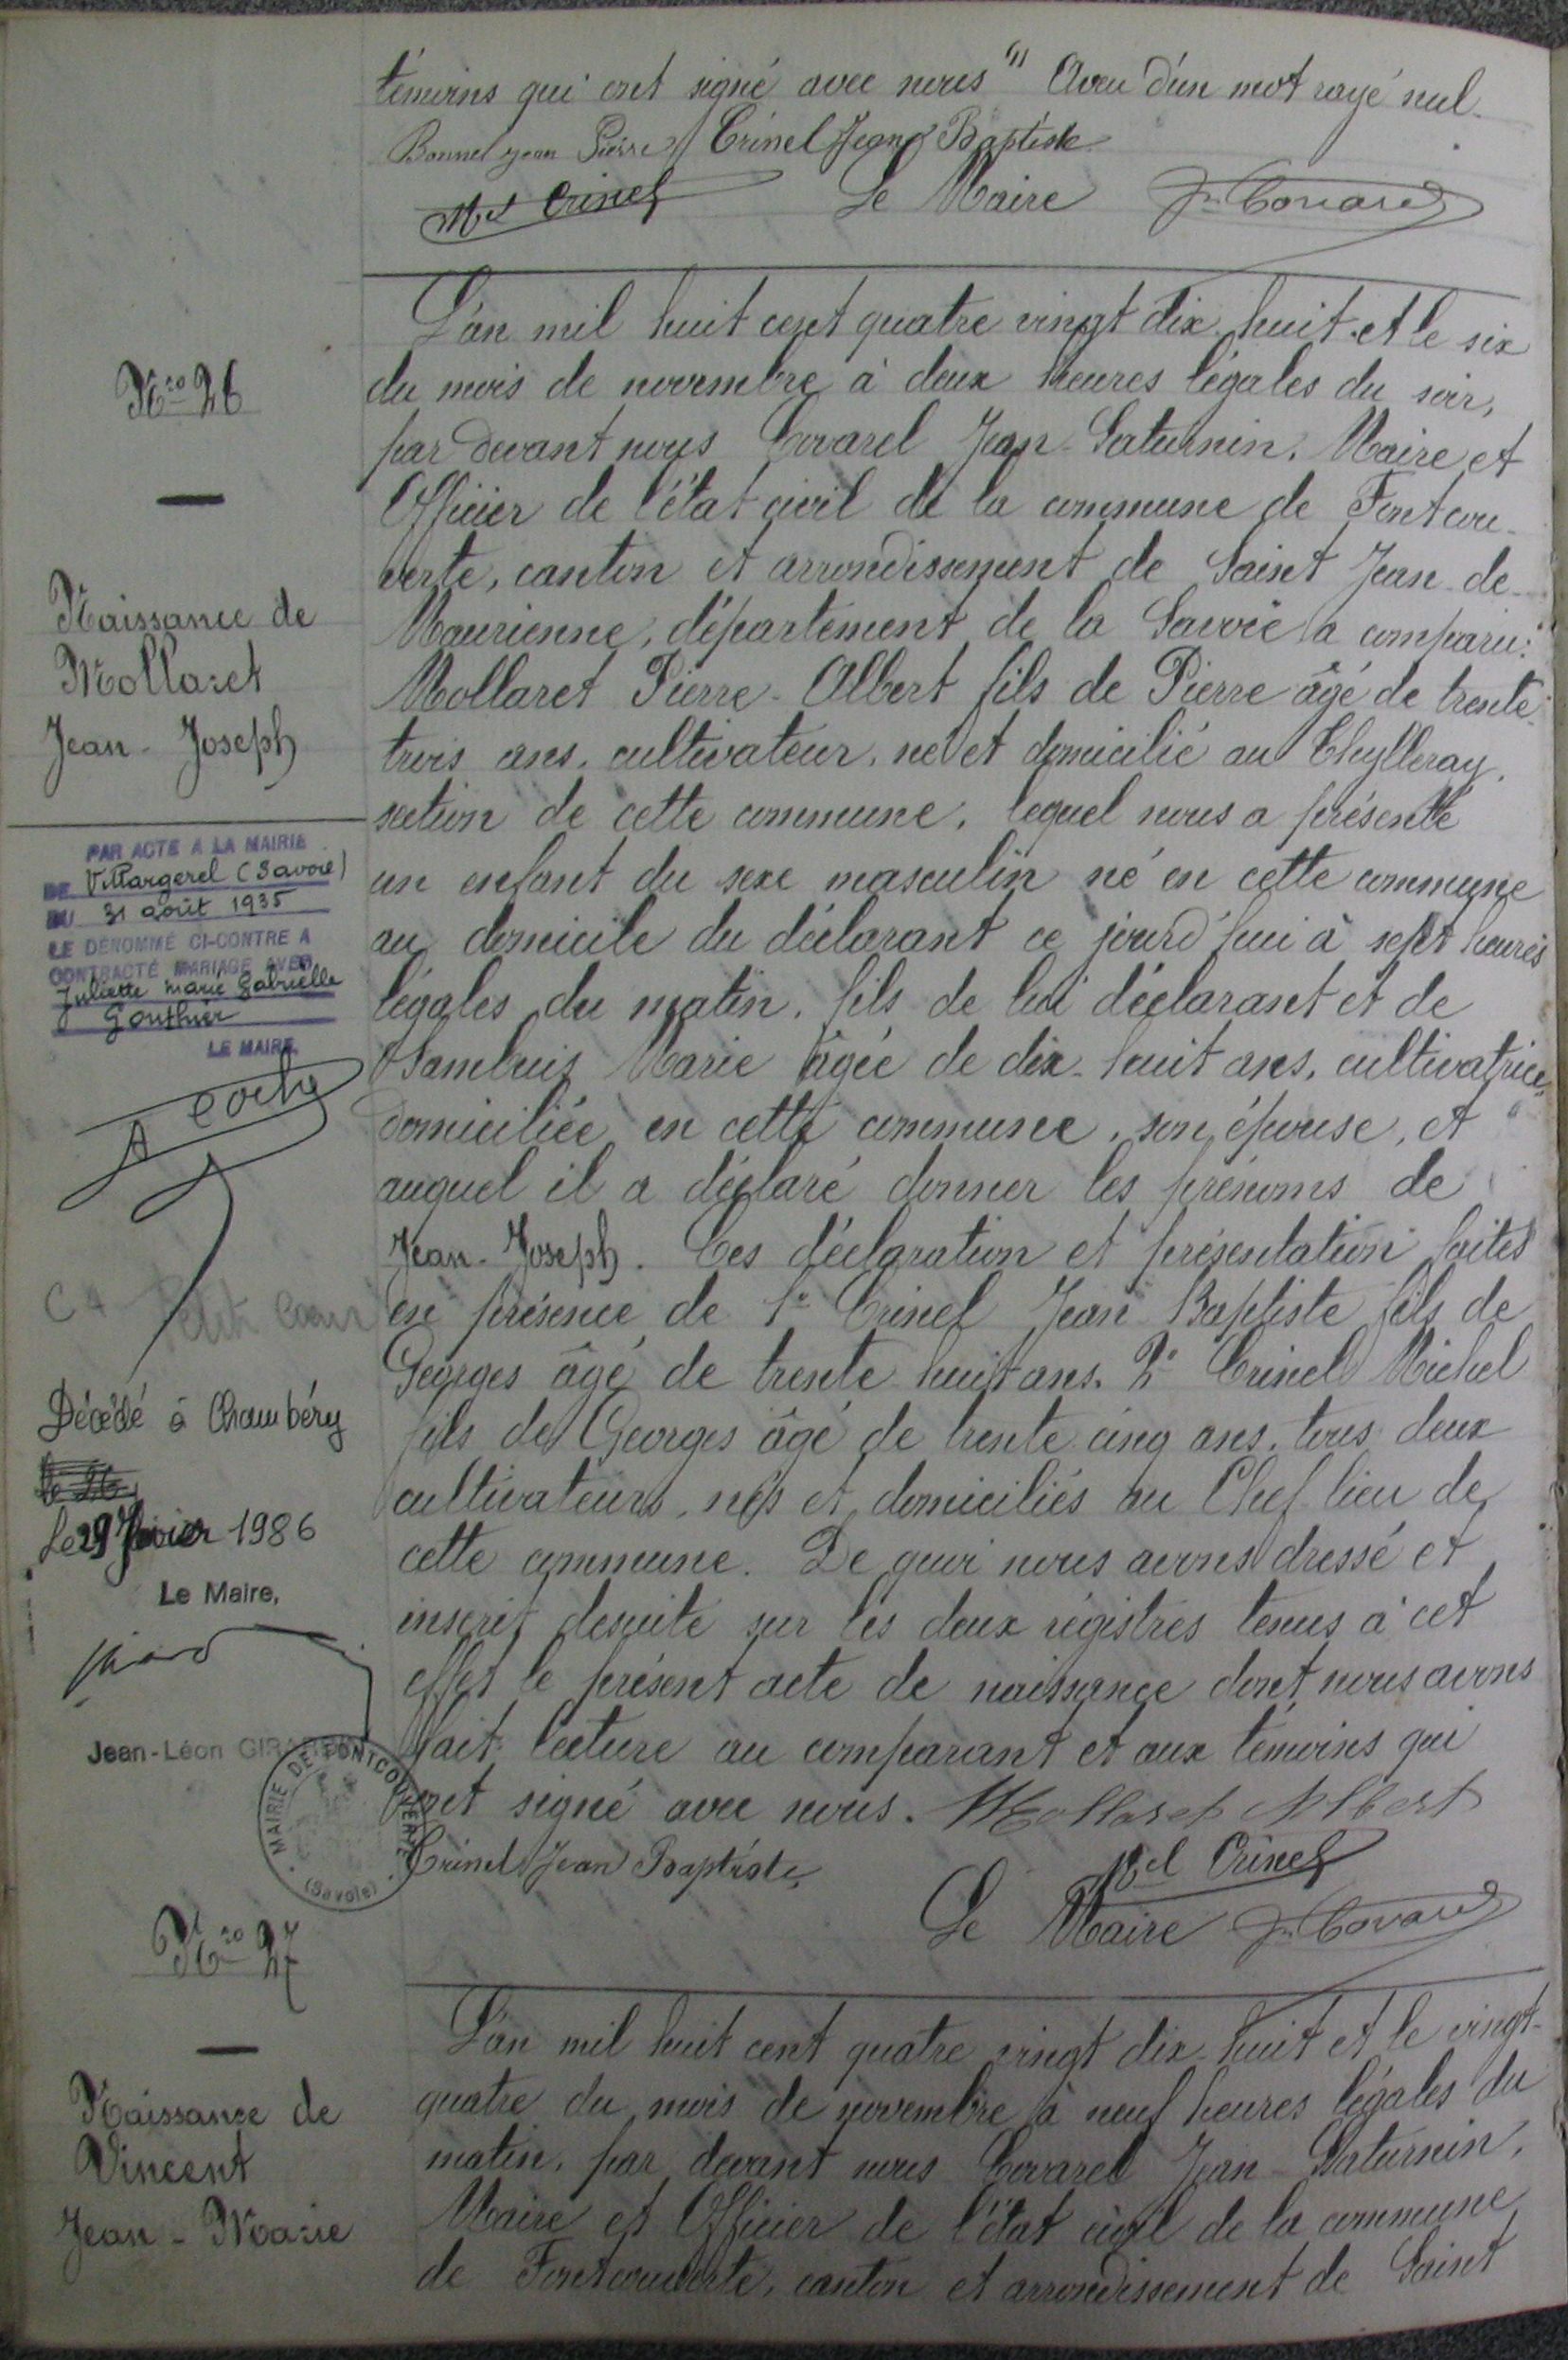 témoins qui ont signé avec nous " Aveu d'un mot rayé nul.
Bonnel Jean Pierre Crinel Jean Baptiste
Mel Crinel Le Maire Jn Covarel
L'an mil huit cent quatre vingt dix huit et le six
du mois de novembre à deux heures légales du soir,
par devant nous Covarel Jean-Saturnin, Maire et
Officier de l'état civil de la commune de Fontcou-
verte, canton et arrondissement de Saint Jean-de-
Maurienne, département de la Savoie a comparu:
Mollaret Pierre-Albert fils de Pierre âgé de trente-
trois ans, cultivateur, né et domicilié au Chylleray,
section de cette commune, lequel nous a présenté
un enfant du sexe masculin né en cette commune
au domicile du déclarant ce jourd'hui à sept heures
légales du matin, fils de lui déclarant et de
Sambuis Marie âgée de dix-huit ans, cultivatrice,
domiciliée en cette commune, son épouse, et
auquel il a déclaré donner les prénoms de
Jean-Joseph. Ces déclaration et présentation faites
en présence de 1° Crinel Jean Baptiste fils de
Georges âgé de trente huit ans. 2° Crinel Michel
fils de Georges âgé de trente cinq ans, tous deux
cultivateurs, nés et domiciliés au Chef-lieu de
cette commune. De quoi nous avons dressé et
inscrit desuite sur les deux régistres tenus à cet
effet le présent acte de naissance dont nous avons
fait lecture au comparant et aux témoins qui
ont signé avec nous. Mollaret Albert
Crinel Jean Baptiste Mel Crinel
Le Maire Jn Covarel
L'an mil huit cent quatre vingt dix-huit et le vingt-
quatre du mois de novembre à neuf heures légales du
matin, par devant nous Covarel Jean-Saturnin,
Maire et Officier de l'état civil de la commune
de Fontcouverte, canton et arrondissement de Saint
Nro 26
Naissance de
Mollaret
Jean-Joseph
PAR ACTE A LA MAIRIE
DE Villargerel (Savoie)
DU 31 août 1935
LE DÉNOMMÉ CI-CONTRE A
CONTRACTÉ MARIAGE AVEC
Juliette Marie Gabrielle
Gonthier
LE MAIRE,
Petit Coeur
Décédé à Chambéry
Le 29 1986
Le Maire,
Jean-Léon
MAIRIE DE FONTCOUVERTE
(Savoie)
Nro 27
Naissance de
Vincent
Jean-Marie